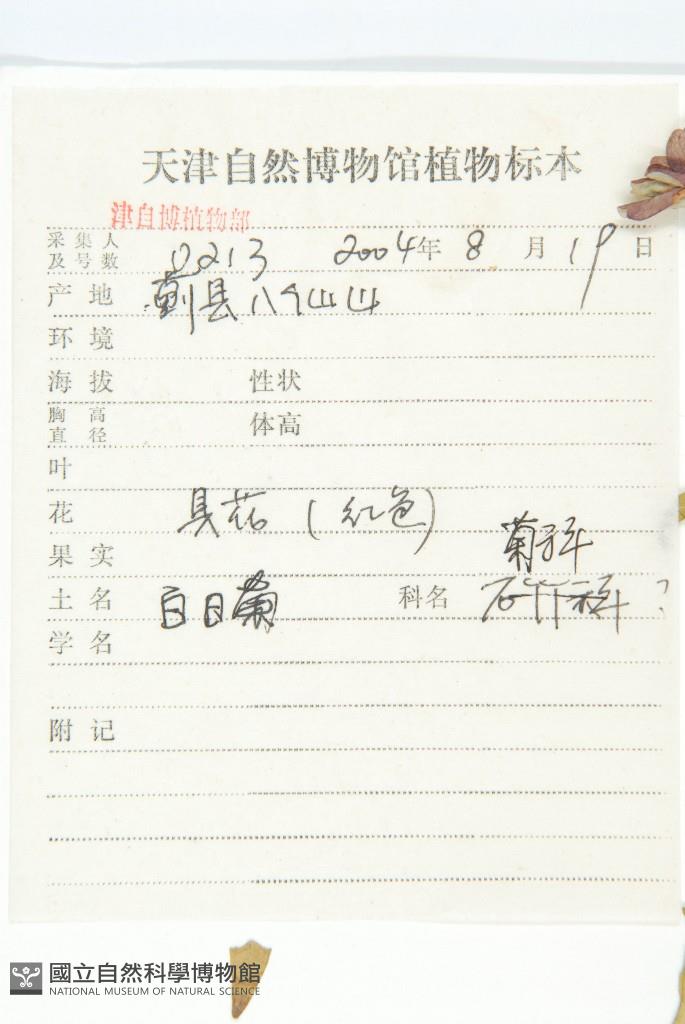 天津自然博物馆植物标本
津自博植物部
采集人
及号数 0213 2004年 8 月 19 日
产地 蓟县八仙山
环境
海拔 性状
胸高
直径 体高
叶
花 具花(红色)
果实 菊科
土名 百日菊 科名 石竹科?
学名
附记
國立自然科學博物館
NATIONAL MUSEUM OF NATURAL SCIENCE